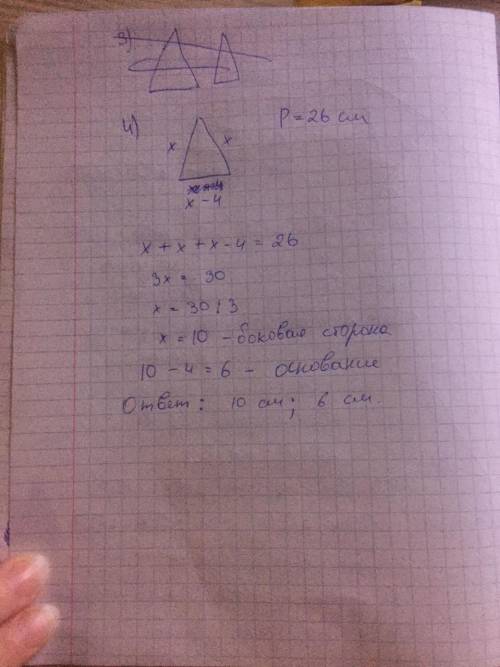 3)
4)
P = 26 см
x x
x - 4
x + x + x - 4 = 26
3x = 30
x = 30 : 3
x = 10 - боковая сторона
10 - 4 = 6 - основание
Ответ: 10 см; 6 см.